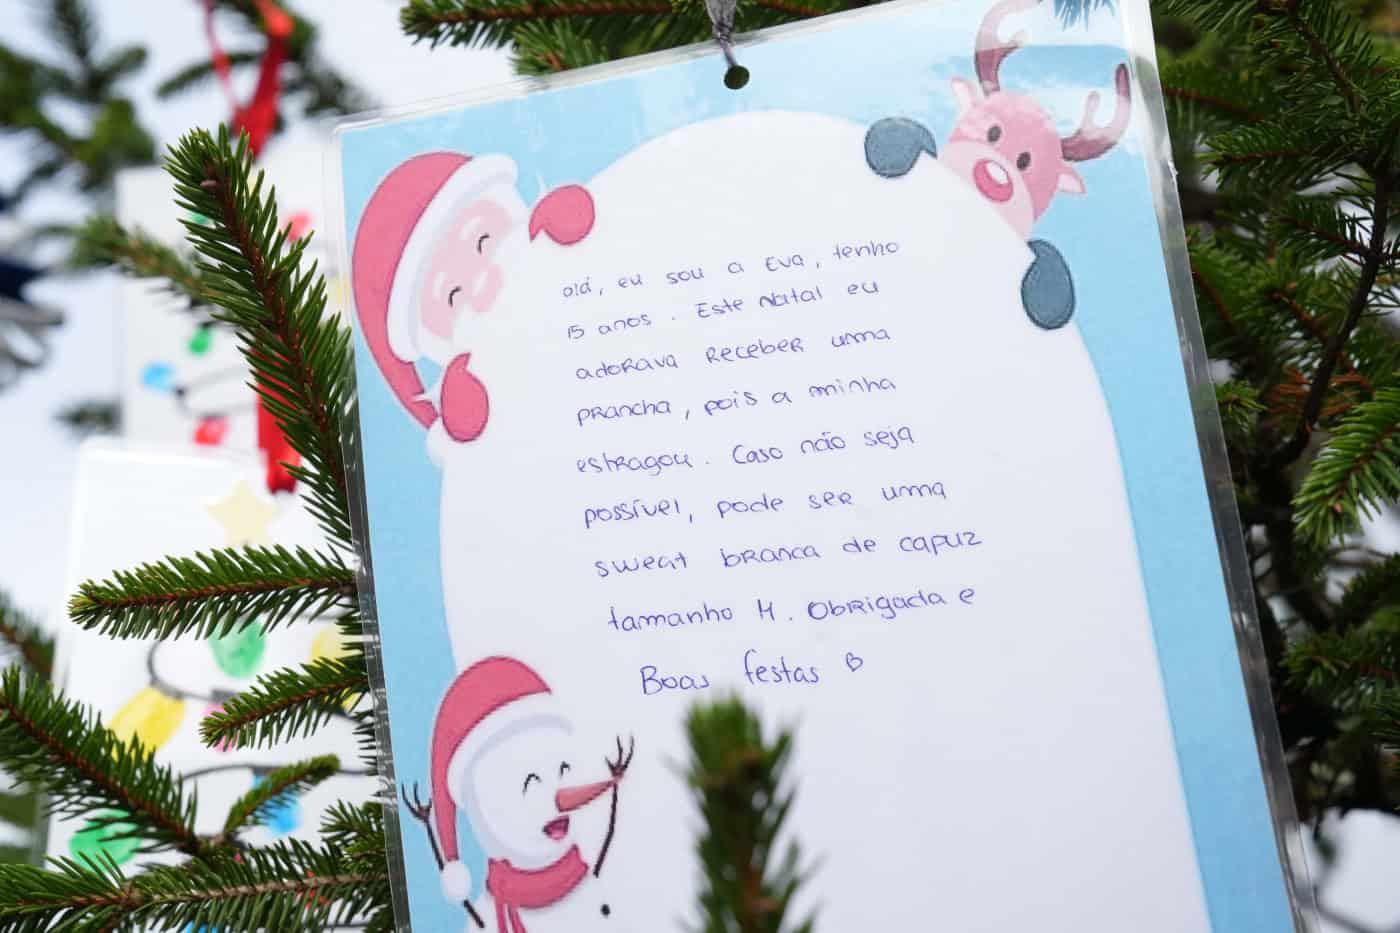 olá, eu sou a Eva, tenho
15 anos. Este Natal eu
adorava receber uma
prancha, pois a minha
estragou. Caso não seja
possível, pode ser uma
sweat branca de capuz
tamanho M. Obrigada e
Boas festas